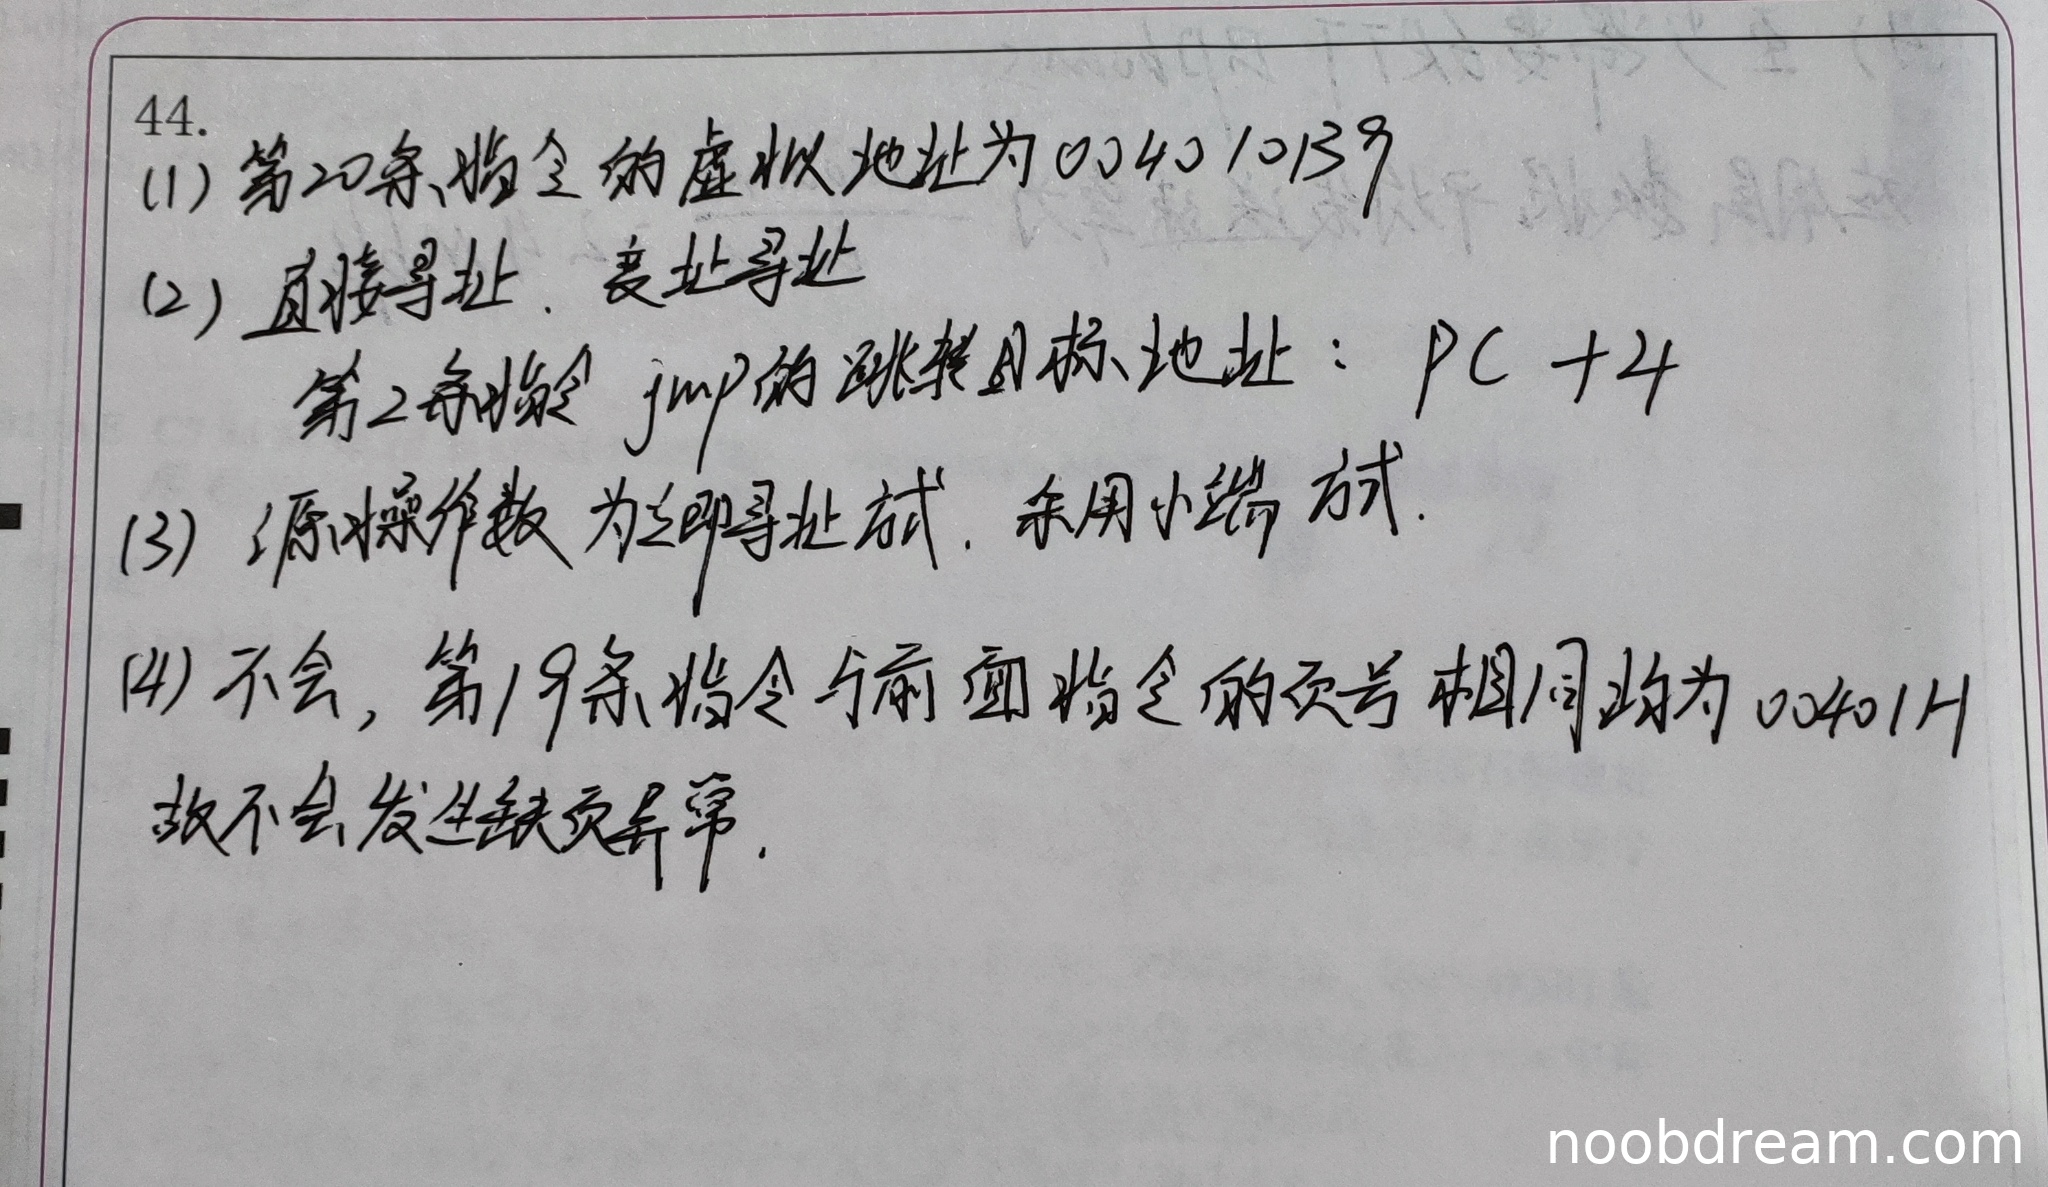 44.
(1) 第20条指令的虚拟地址为004010139
(2) 直接寻址. 变址寻址
第2条指令 jmp的跳转目标地址: PC +4
(3) 源操作数为立即寻址方式. 采用小端方式.
(4) 不会, 第19条指令与前面指令的页号相同均为00401H
故不会发生缺页异常.
noobdream.com